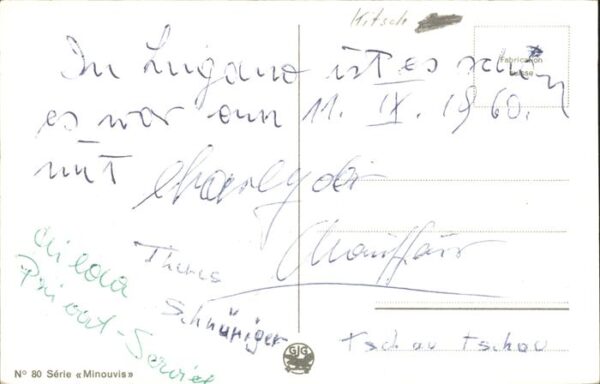 Kitsch
Fabrication
Suisse
In Lugano ist es schön
es war am 11. IX. 1960.
mit Charly der
Chaufför
Hilda
Privat-Service
Theres
Schnüriger
Tschau tschau
GJG
N° 80 Série «Minouvis»